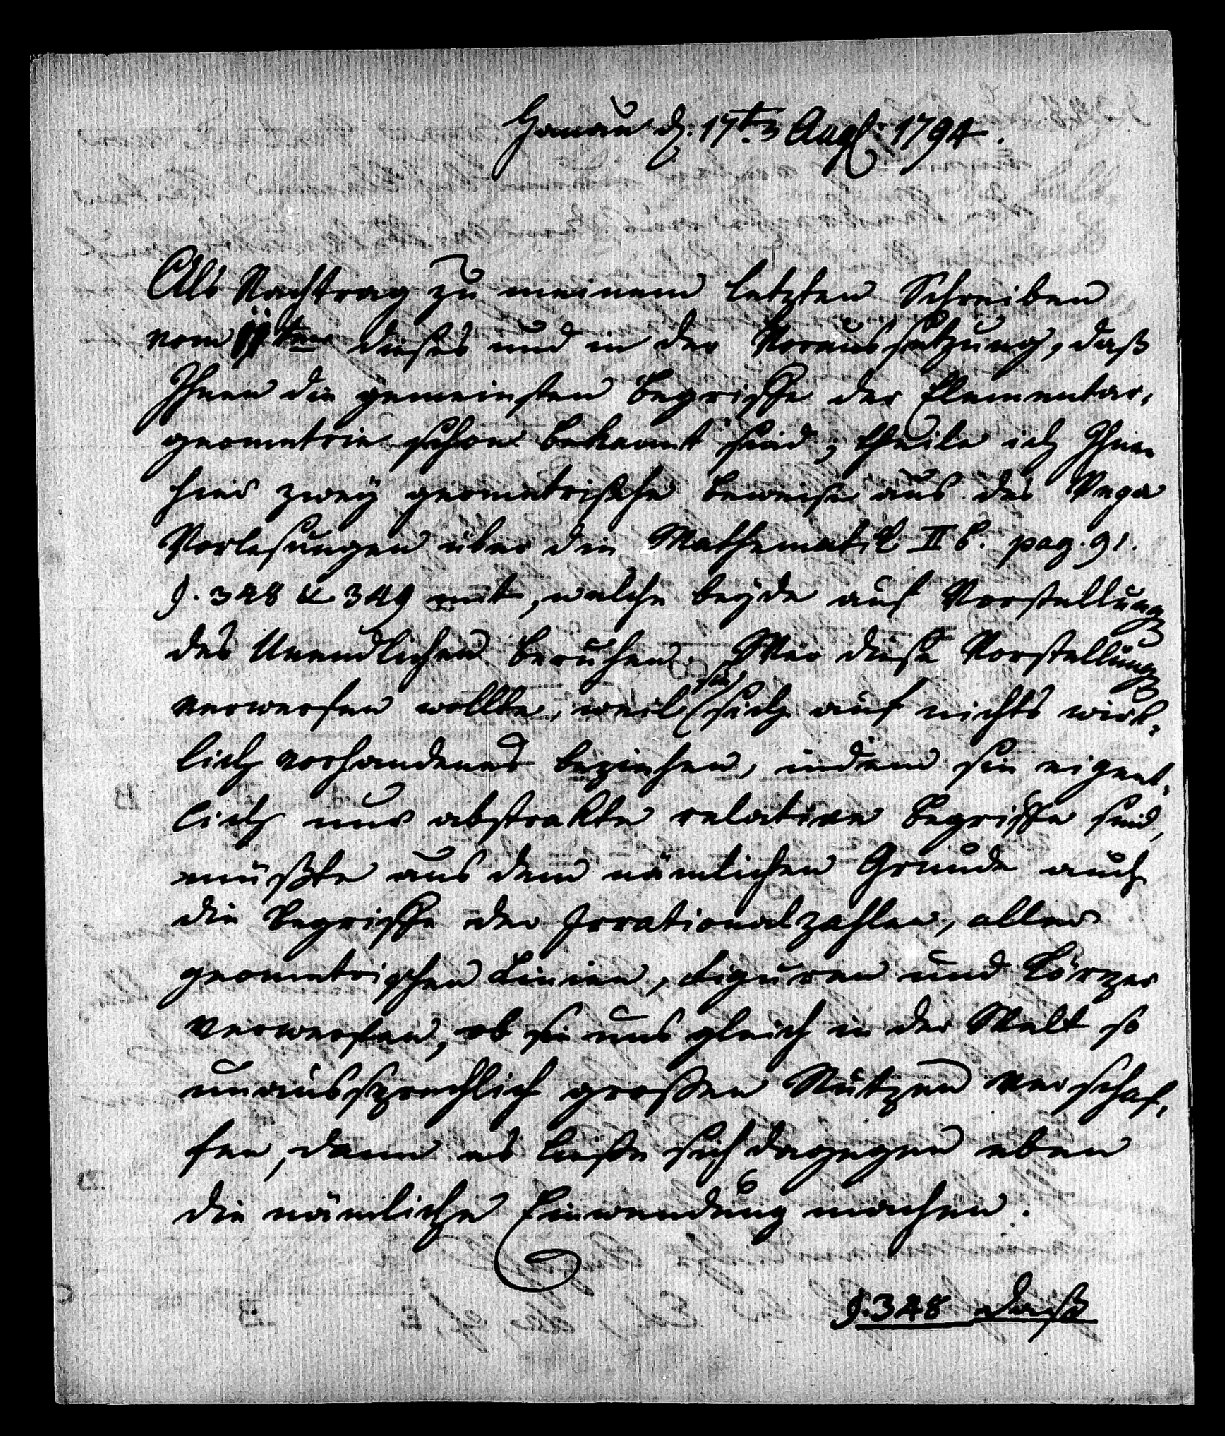 Hanau d: 17t Augst: 1794.
Als Nachtrag zu meinem letzten Schreiben
vom 11ten dieses und in der Voraussetzung, daß
Ihnen die gemeinsten Begriffe der Elementar,
geometrie schon bekannt sind, theile ich Ihnen
hier zwey geometrische Beweise aus des Vega
Vorlesungen über die Mathematik II B. pag. 91.
§. 348 & 349 mit, welche beyde auf Vorstellung
des Unendlichen beruhen. Wer diese Vorstellung
verwerfen wollte, weil sie sich auf nichts wirk,
lich vorhandenes beziehen, indem sie eigent,
lich nur abstrakte relative Begriffe sind,
müßte aus dem nämlichen Grunde auch
die Begriffe der Irrationalzahlen, aller
geometrischen Linien, Figuren und Körper
verwerfen, ob sie uns gleich in der Welt so
unaussprechlich großen Nutzen verschaf,
fen, denn es ließe sich dagegen eben
die nämliche Einwendung machen.
§. 348 Daß